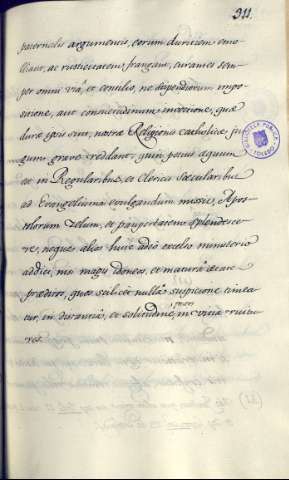 311.
paternalis argumentis, eorum duritiem emo-
lliant, ac rusticitatem frangant, curantes sem-
per omni via, et consilio, ne stipendiorum impo-
sitione, aut consuetudinum invectione, quæ
duræ ipsis sint, nostræ Religionis catholicæ ju-
gum grave reddant, quin potius agnum
ut in Regularibus, et Clericis Sæcularibus
ad Evangelium evulgandum missis, Apos-
tolorum Zelum, et paupertatem splendesce-
re, neque alios huic adeo excelso ministerio
addici, nisi magis idoneos, et matura ætate
præditos, quos scilicet nulla suspicione timea-
tur, in distantia, et solitudine, in vitia
res.
BIBLIOTECA PUBLICA
TOLEDO